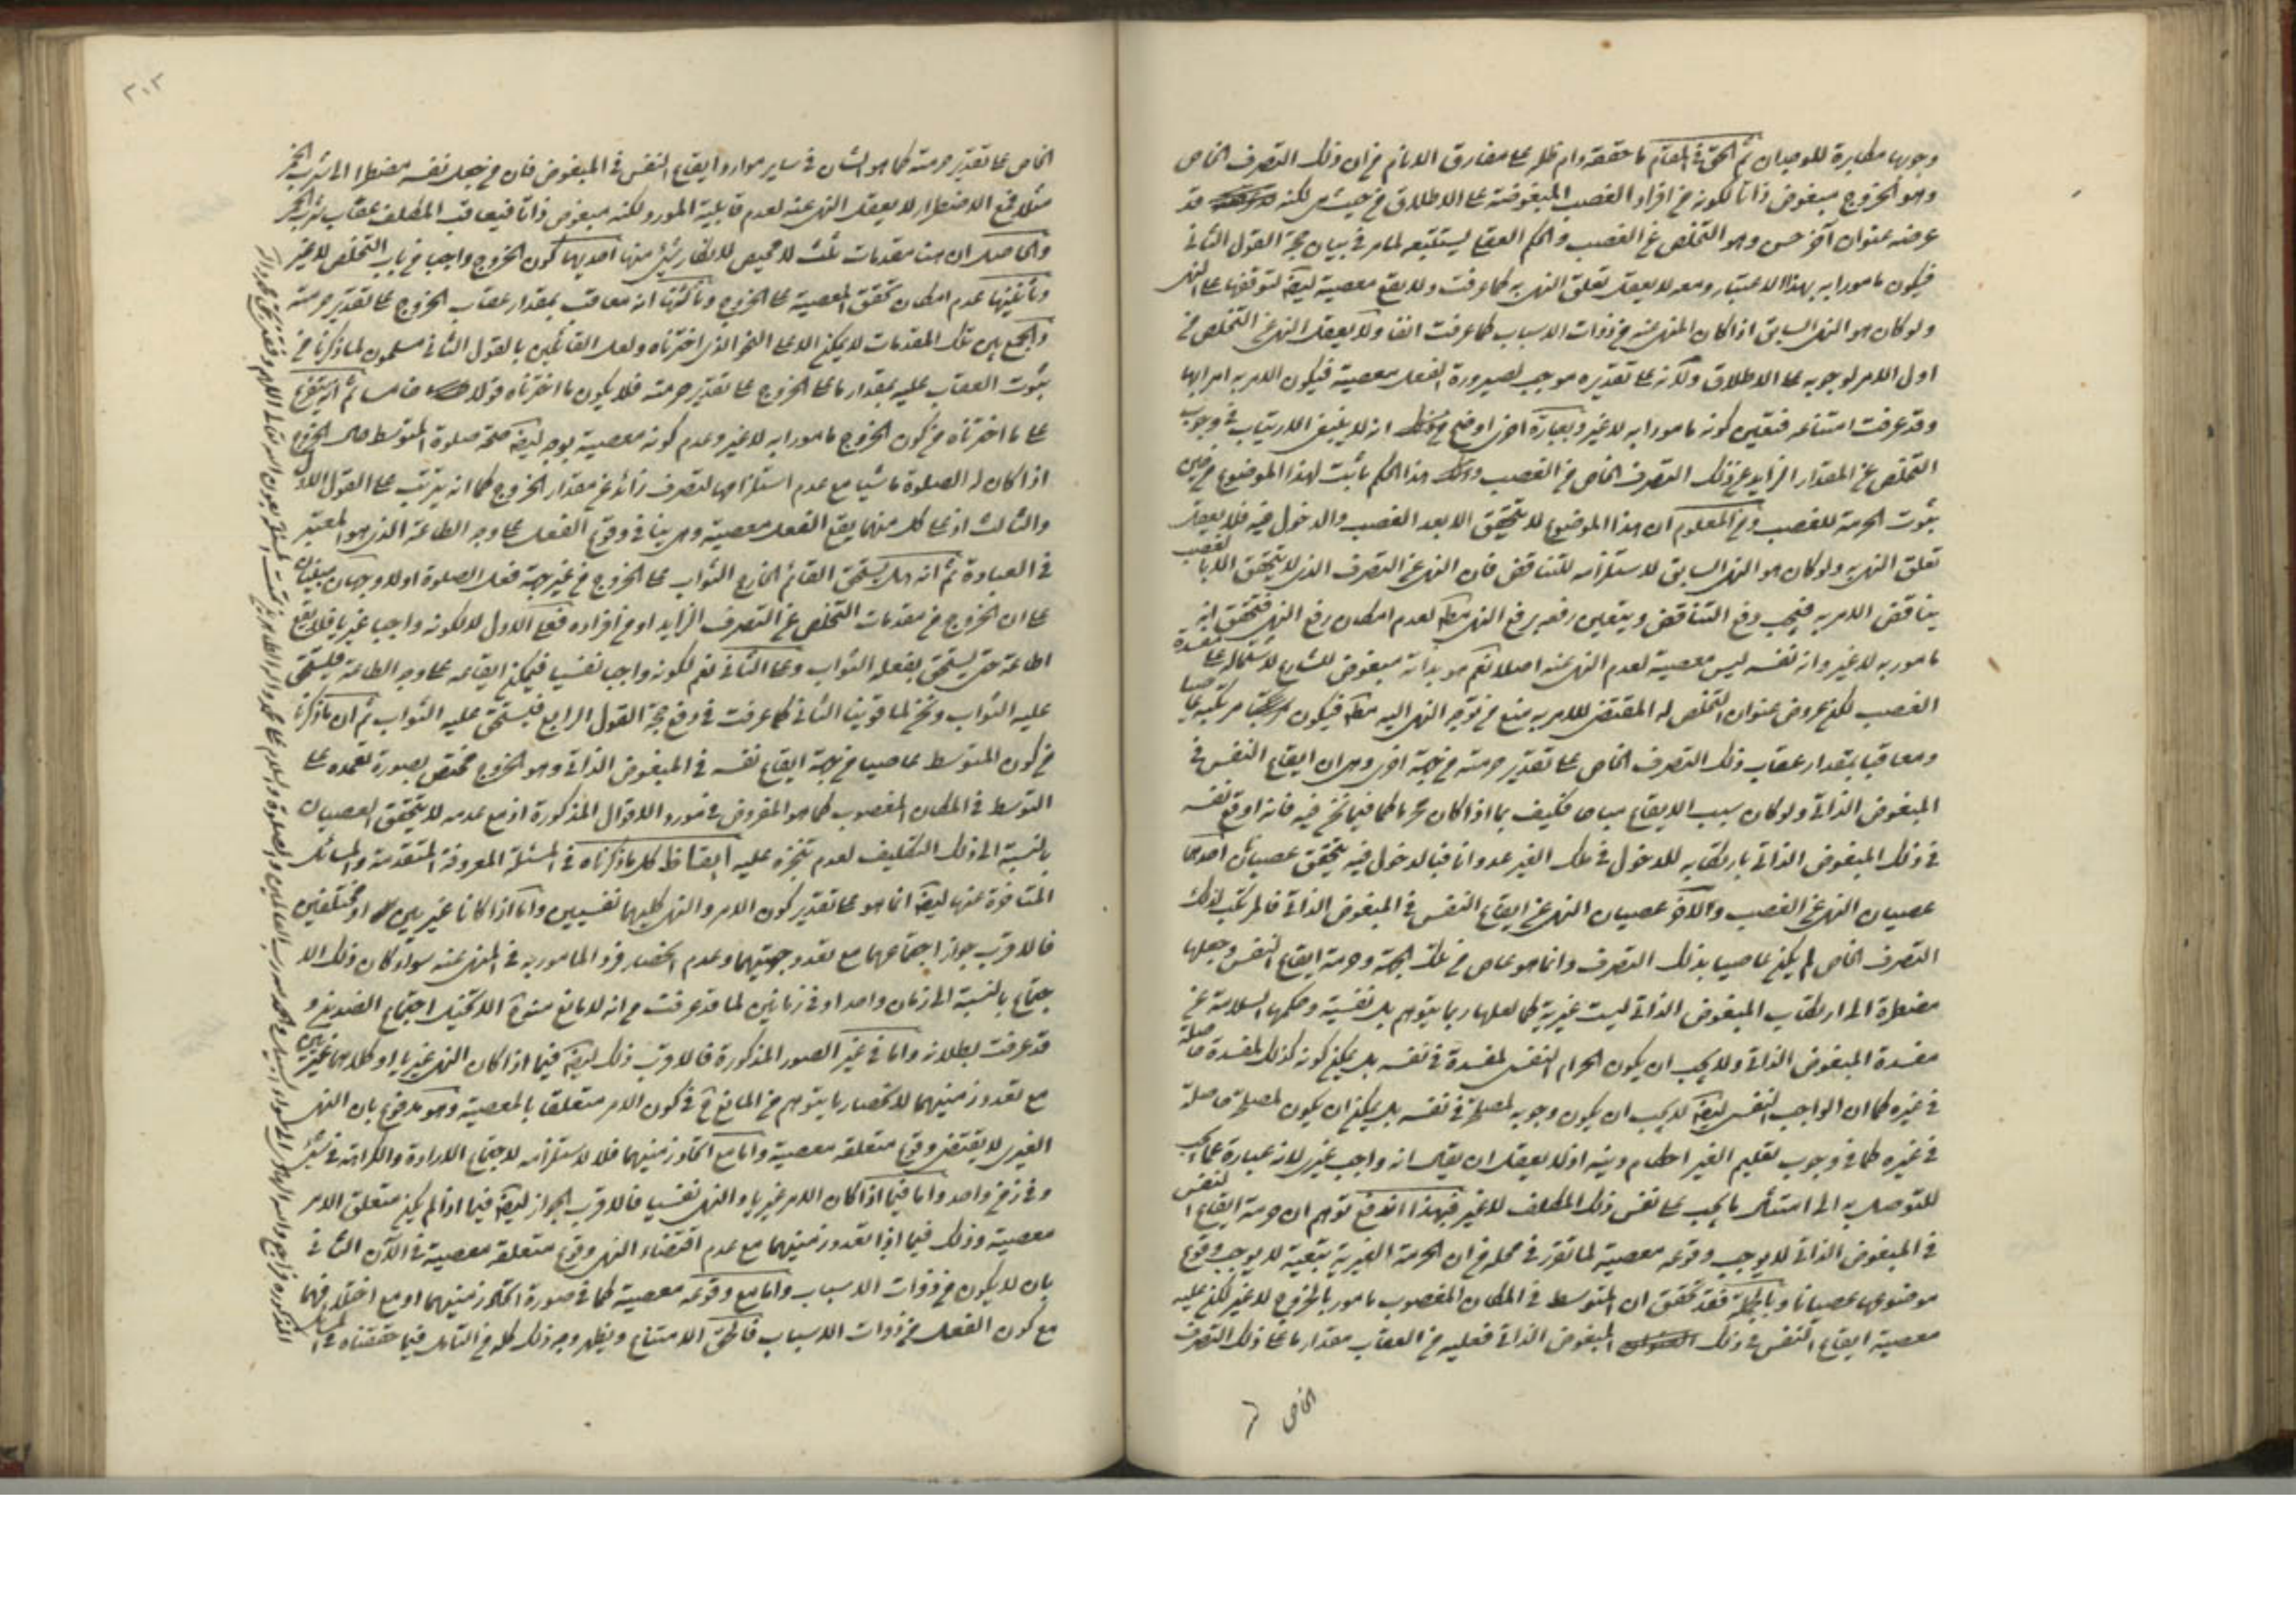 وجوبها مكابرة للوجدان ثم الحق في المقام ما حققه دام ظله على مفارق الانام من ان ذلك التصرف الخاص
وهو الخروج مبغوض ذاتا لكونه من افراد الغصب المبغوضة على الاطلاق من حيث هي لكنه قد
عرضه عنوان آخر حسن وهو التخلص عن الغصب والحكم العقلي يستتبعه لما مر في بيان حجة القول الثاني
فيكون مامورا به بهذا الاعتبار ومعه لا يعقل تعلق النهي به كما عرفت ولا يقع معصية ايضا لتوقفها على النهي
ولو كان هو النهي السابق اذا كان المنهي عنه من ذوات الاسباب كما عرفت انفا ولا يعقل النهي عن التخلص في
اول الامر لوجوبه على الاطلاق ولانه على تقديره موجب لصيرورة الفعل معصية فيكون الامر به امرا بها
وقد عرفت امتناعه فتعين كونه مامورا به لا غير وبعبارة اخرى اوضح انه لا ينبغي الارتياب في وجوب
التخلص عن المقدار الزايد عن ذلك التصرف الخاص من الغصب هذا الحكم ثابت لهذا الموضوع من حين
ثبوت الحرمة للغصب ومن المعلوم ان هذا الموضوع لا يتحقق الا بعد الغصب والدخول فيه فلا يعقل
تعلق النهي به ولو كان هو النهي السابق لاستلزامه للتناقض فان النهي عن التصرف الذي لا يتحقق الا بالغصب
يناقض الامر به فيجب دفع التناقض ويتعين رفعه برفع النهي لعدم امكان رفع النهي فتحقق انه
مامور به لا غير وانه نفسه ليس معصية لعدم النهي عنه اصلا نعم هو بذاته مبغوض للشارع لاشتماله على مفسدة
الغصب لكن عروض عنوان التخلص له المقتضي للامر به منع من توجه النهي اليه فيكون مرتكبه عاصيا
ومعاقبا بمقدار عقاب ذلك التصرف الخاص على تقدير حرمته من جهة اخرى وهي ان ايقاع النفس في
المبغوض الذاتي ولو كان سبب الايقاع مباحا فكيف بما اذا كان محرما كما فيما نحن فيه فانه اوقع نفسه
في ذلك المبغوض الذاتي بارتكابه للدخول في ملك الغير عدوانا فبالدخول فيه يتحقق عصيان احدهما
عصيان النهي عن الغصب والآخر عصيان النهي عن ايقاع النفس في المبغوض الذاتي فالمرتكب لذلك
التصرف الخاص لم يكن عاصيا بذلك التصرف وانما هو عاص من تلك الجهة وحرمة ايقاع النفس وجعلها
مضطرة الى ارتكاب المبغوض الذاتي ليست غيرية كما لعلها ربما يتوهم بل نفسية وحكمها السلامة عن
مفسدة المبغوض الذاتي ولا يجب ان يكون الحرام النفسي لمفسدة في نفسه بل يمكن كونه كذلك لمفسدة حاصلة
في غيره كما ان الواجب النفسي ايضا لا يجب ان يكون وجوبه لمصلحة في نفسه بل يمكن ان يكون لمصلحة حاصلة
في غيره كما في وجوب تعليم الغير احكام دينه اذ لا يعقل ان يقال انه واجب غيري لانه عبارة عما يجب
للتوصل به الى امتثال ما يجب على نفس ذلك المكلف لا غير فبهذا اندفع توهم ان حرمة ايقاع النفس
في المبغوض الذاتي لا يوجب وقوعه معصية لما تقرر في محله من ان الحرمة الغيرية تبعية لا يوجب وقوع
موضوعها عصيانا وبالجملة فقد تحقق ان المتوسط في المكان المغصوب مامور بالخروج لا غير لكن عليه
معصية ايقاع النفس في ذلك المبغوض الذاتي فعليه من العقاب مقدار ما على ذلك التصرف
الخاص
٢٠٢
الخاص على تقدير حرمته كما هو الشان في ساير موارد ايقاع النفس في المبغوض فان من جعل نفسه مضطرا الى شرب الخمر
مثلا فمع الاضطرار لا يعقل النهي عنه لعدم قابلية المورد ولكنه مبغوض ذاتا فيعاقب المكلف عقاب شرب الخمر
والحاصل ان هنا مقدمات ثلث لا محيص لانكار شيء منها احديها كون الخروج واجبا من باب التخلص لا غير
وثانيتها عدم امكان تحقق المعصية على الخروج وثالثتها انه معاقب بمقدار عقاب الخروج على تقدير حرمته
والجمع بين تلك المقدمات لا يمكن الا على النحو الذي اخترناه ولعل القائلين بالقول الثاني مسلمون لما ذكرنا من
ثبوت العقاب عليه بمقدار ما على الخروج على تقدير حرمته فلا يكون ما اخترناه قولا خامسا ثم انه يتفرع
على ما اخترناه من كون الخروج مامورا به لا غير وعدم كونه معصية بوجه ايضا صحة صلوة المتوسط حال الخروج
اذا كان له الصلوة ماشيا مع عدم استلزامها لتصرف زائد عن مقدار الخروج كما انه يترتب على القول الاول
والثالث اذ على كل منهما يقع الفعل معصية وهي ينافي وقوع الفعل على وجه الطاعة الذي هو المعتبر
في العبادة ثم انه هل يستحق القائم الخارج الثواب على الخروج من غير جهة فعل الصلوة اولا وجهان مبنيان
على ان الخروج من مقدمات التخلص عن التصرف الزايد او من افراده فعلى الاول لا لكونه واجبا غيريا فلا يقع
اطاعة حتى يستحق بفعله الثواب وعلى الثاني نعم لكونه واجبا نفسيا فيمكن ايقاعه على وجه الطاعة فيستحق
عليه الثواب ونحن لما قوينا الثاني كما عرفت في دفع حجة القول الرابع فيستحق عليه الثواب ثم ان ما ذكرنا
من كون المتوسط عاصيا من جهة ايقاع نفسه في المبغوض الذاتي وهو الخروج مختص بصورة تعمده على
التوسط في المكان المغصوب كما هو المفروض في مورد الاقوال المذكورة اذ مع عدمه لا يتحقق العصيان
بالنسبة الى ذلك التكليف لعدم تنجزه عليه ايقاظ كل ما ذكرناه في المسئلة المعروفة المتقدمة والمسائل
المتاخرة عنها ايضا انما هو على تقدير كون الامر والنهي كليهما نفسيين واما اذا كانا غيريين او مختلفين
فالاقرب جواز اجتماعهما مع تعدد جهتيهما وعدم انحصار فرد المامور به في المنهي عنه سواء كان ذلك الا
جتماع بالنسبة الى زمان واحد او في زمانين لما قد عرفت من انه لا مانع منه الا تخيل اجتماع الضدين و
قد عرفت بطلانه واما في غير الصور المذكورة فالاقرب ذلك ايضا فيما اذا كان النهي غيريا او كلاهما غيريين
مع تعدد زمنيهما لانحصار ما يتوهم من المانع في كون الامر متعلقا بالمعصية وهو مدفوع بان النهي
الغيري لا يقتضي وقوع متعلقه معصية واما مع اتحاد زمنيهما فلا لاستلزامه لاجتماع الارادة والكراهة في شيء
وفي زمن واحد واما فيما اذا كان الامر غيريا والنهي نفسيا فالاقرب الجواز ايضا فيما اذا لم يكن متعلق الامر
معصية وذلك فيما اذا تعدد زمنيهما مع عدم اقتضاء النهي وقوع متعلقه معصية في الآن الثاني
بان لا يكون من ذوات الاسباب واما مع وقوعه معصية كما في صورة اتحاد زمنيهما او مع اختلافهما
مع كون الفعل من ذوات الاسباب فالحق الامتناع ويظهر وجه ذلك كله من التامل فيما حققناه في المسائل
المذكورة فراجع والله الهادي الى سواء السبيل والحمد لله رب العالمين والصلوة والسلام على محمد وآله الطاهرين